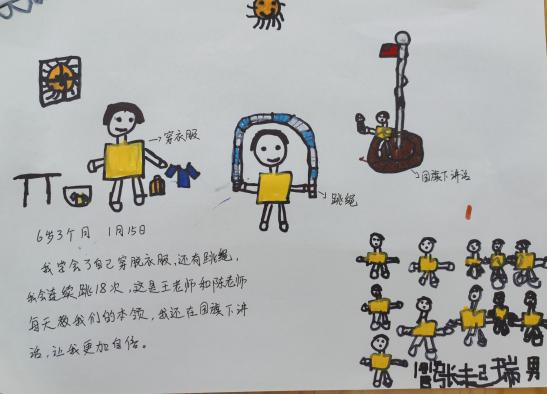 穿衣服
跳绳
国旗下讲话
6岁3个月 1月15日
我学会了自己穿脱衣服,还有跳绳,
我会连续跳18次,这是王老师和陈老师
每天教我们的本领,我还在国旗下讲
话,让我更加自信。
张赫瑞 男